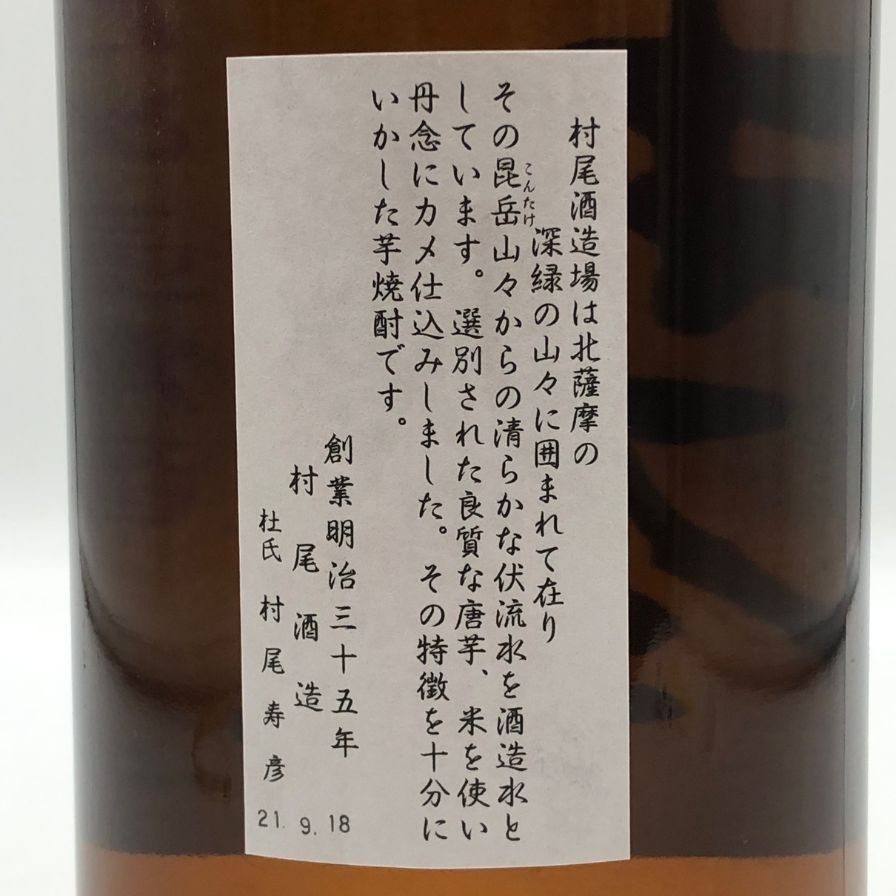 村尾酒造場は北薩摩の
深緑の山々に囲まれて在り
その昆岳山々からの清らかな伏流水を酒造水と
こんたけ
しています。選別された良質な唐芋、米を使い
丹念にカメ仕込みしました。その特徴を十分に
いかした芋焼酎です。
創業明治三十五年
村尾酒造
杜氏 村尾寿彦
21. 9. 18